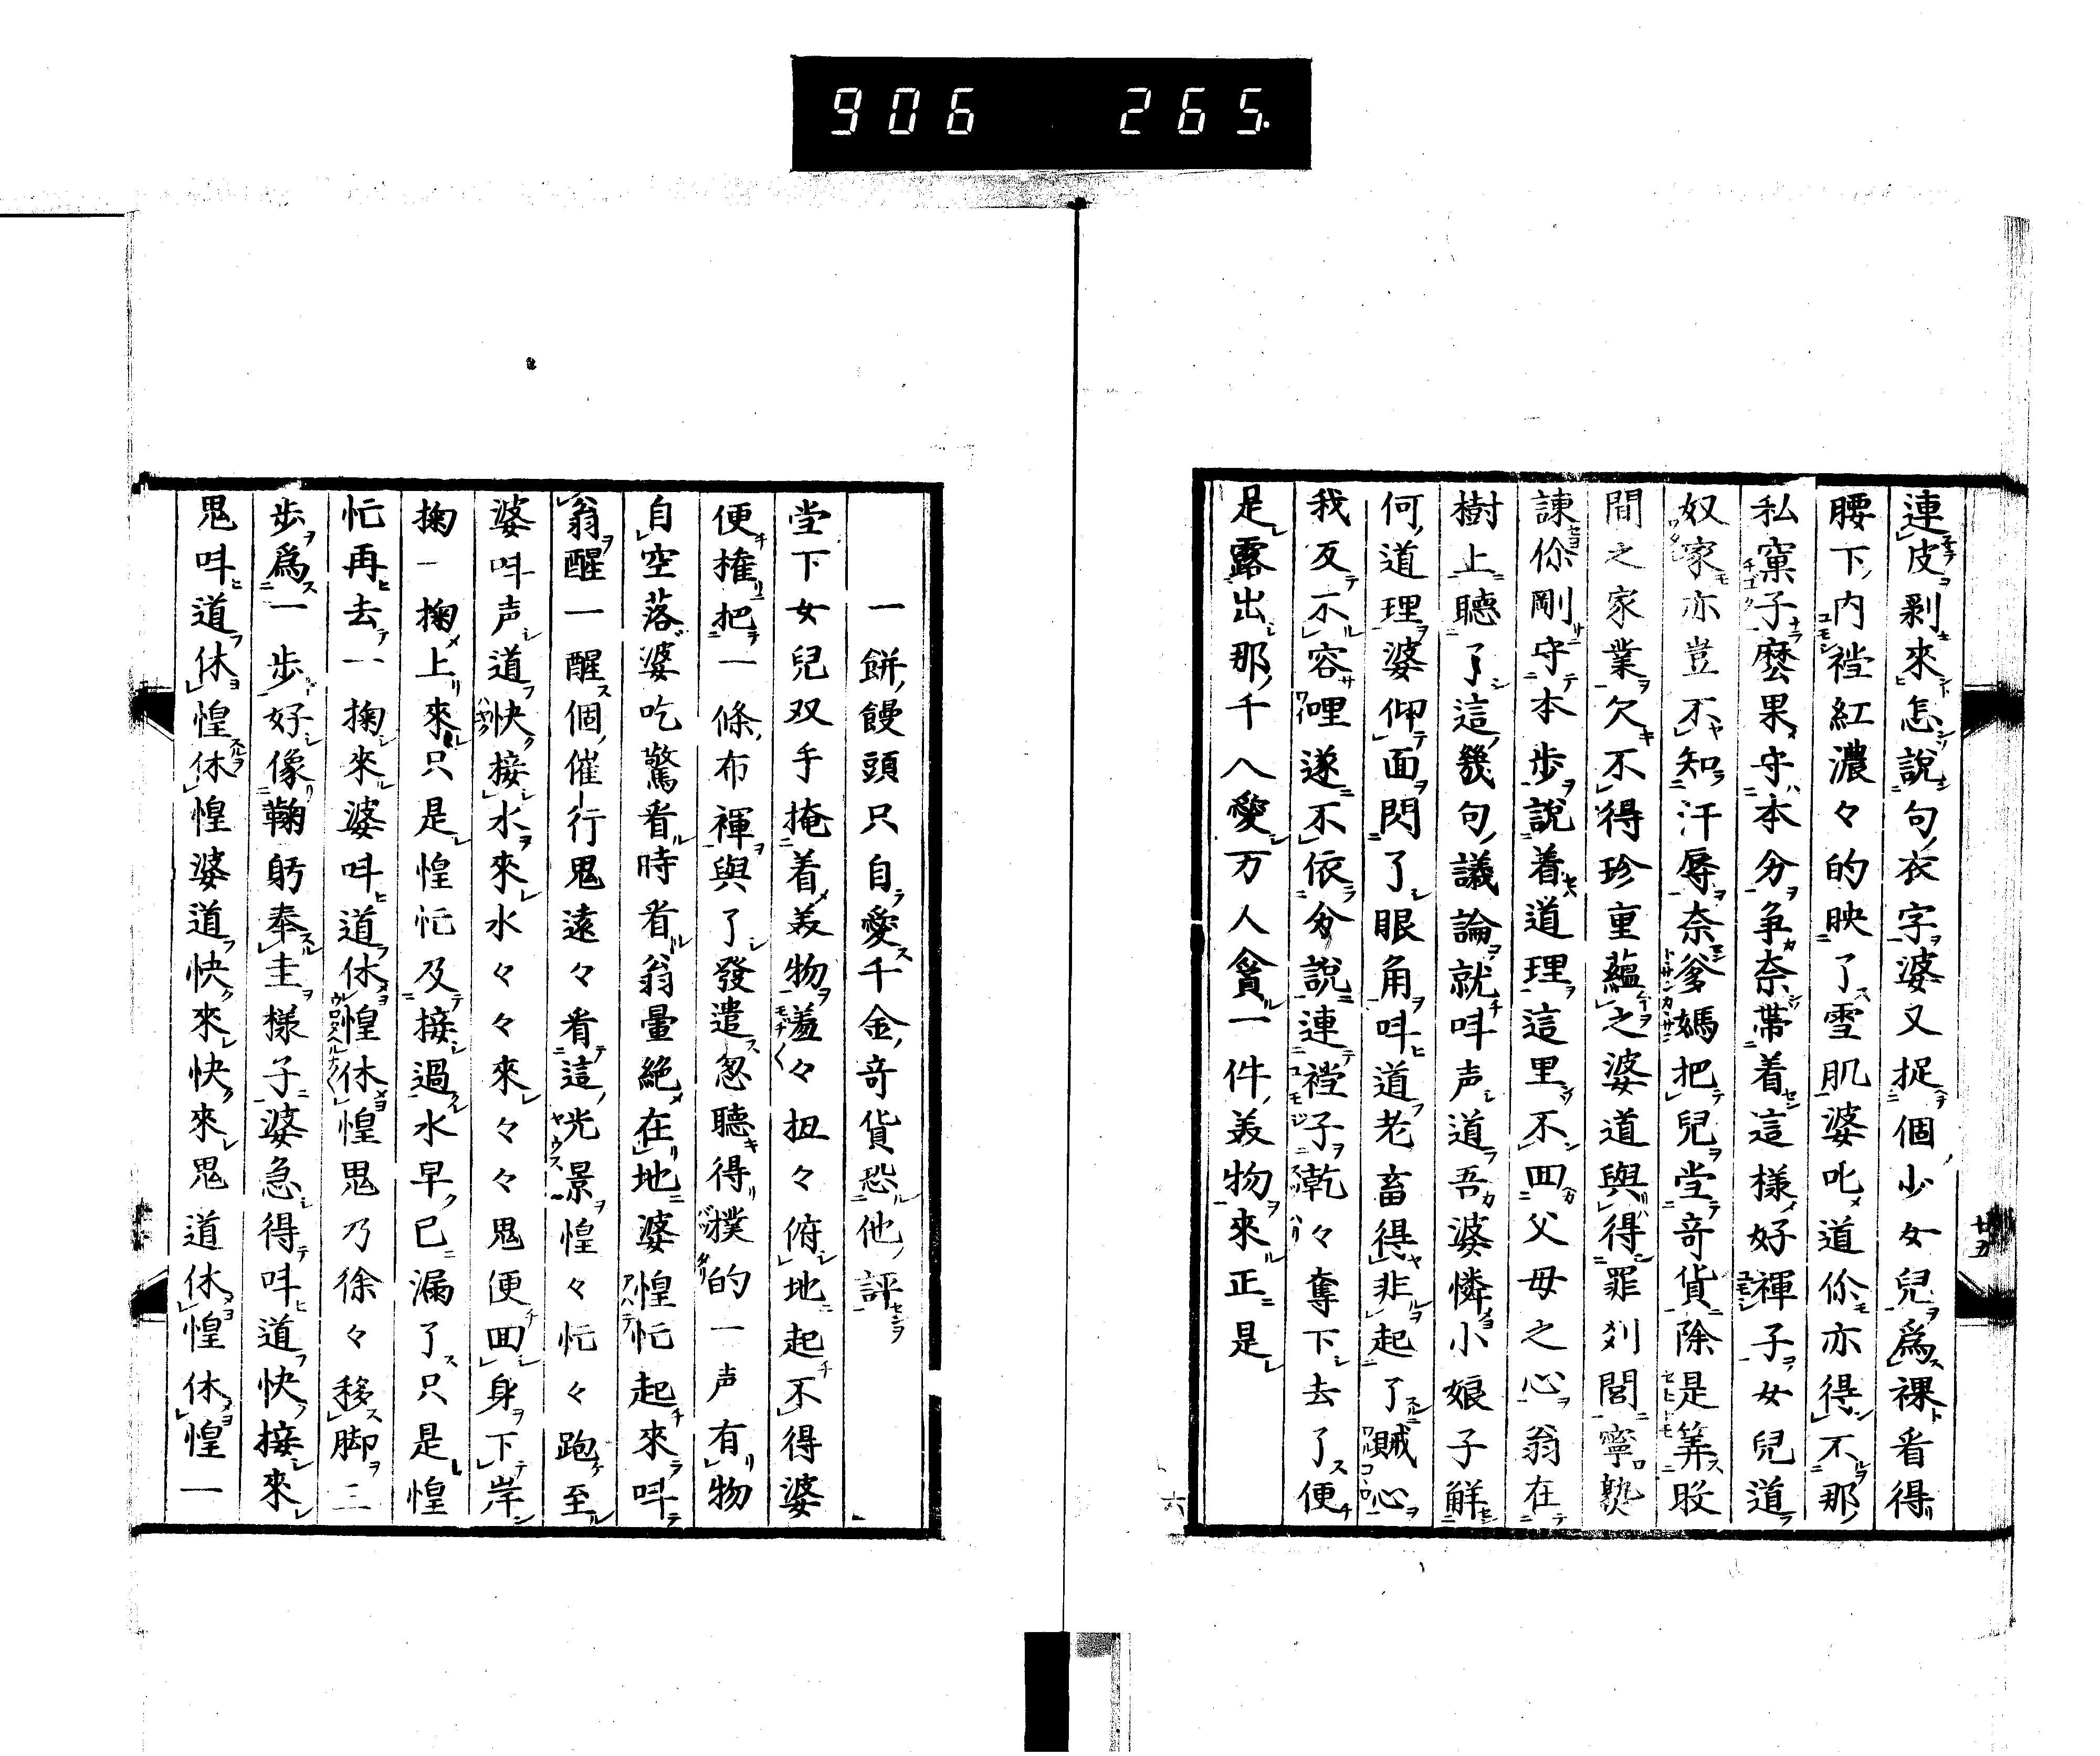 906 265.
連皮剥來怎說句衣字婆又捉個少女兒爲裸看得
腰下內䘕紅濃々的映了雪肌婆叱道你亦得不那
私窠子麼果守本分争奈帶着這樣好褌子女兒道
奴家亦豈不知汗辱奈爹媽把兒堂竒貨除是筭殁
間之家業欠不得珍重蘊之婆道與得罪刘閻寧熟
諫你剛守本步說着道理這里不回父母之心翁在
樹上聽了這幾句議論就呌声道吾婆憐小娘子解
何道理婆仰面閃了眼角呌道老畜得非起了賊心
我反不容哩遂不依分說連䘕子乾々奪下去了便
是露出那千人愛万人貪一件美物來正是
一餅饅頭只自愛千金竒貨恐他評
堂下女兒双手掩着美物羞々扭々俯地起不得婆
便権把一條布褌與了發遣忽聽得撲的一声有物
自空落婆吃驚看時看翁暈絶在地婆惶忙起來呌
翁醒一醒個催行鬼遠々看這光景惶々忙々跑至
婆呌声道快接水來水々々來々々鬼便回身下岸
掬一掬上來只是惶忙及接過水早已漏了只是惶
忙再去一掬來婆呌道休惶休惶鬼乃徐々移脚三
歩爲一歩好像鞠躬奉圭様子婆急得呌道快接來
鬼呌道休惶休惶婆道快來快來鬼道休惶休惶一